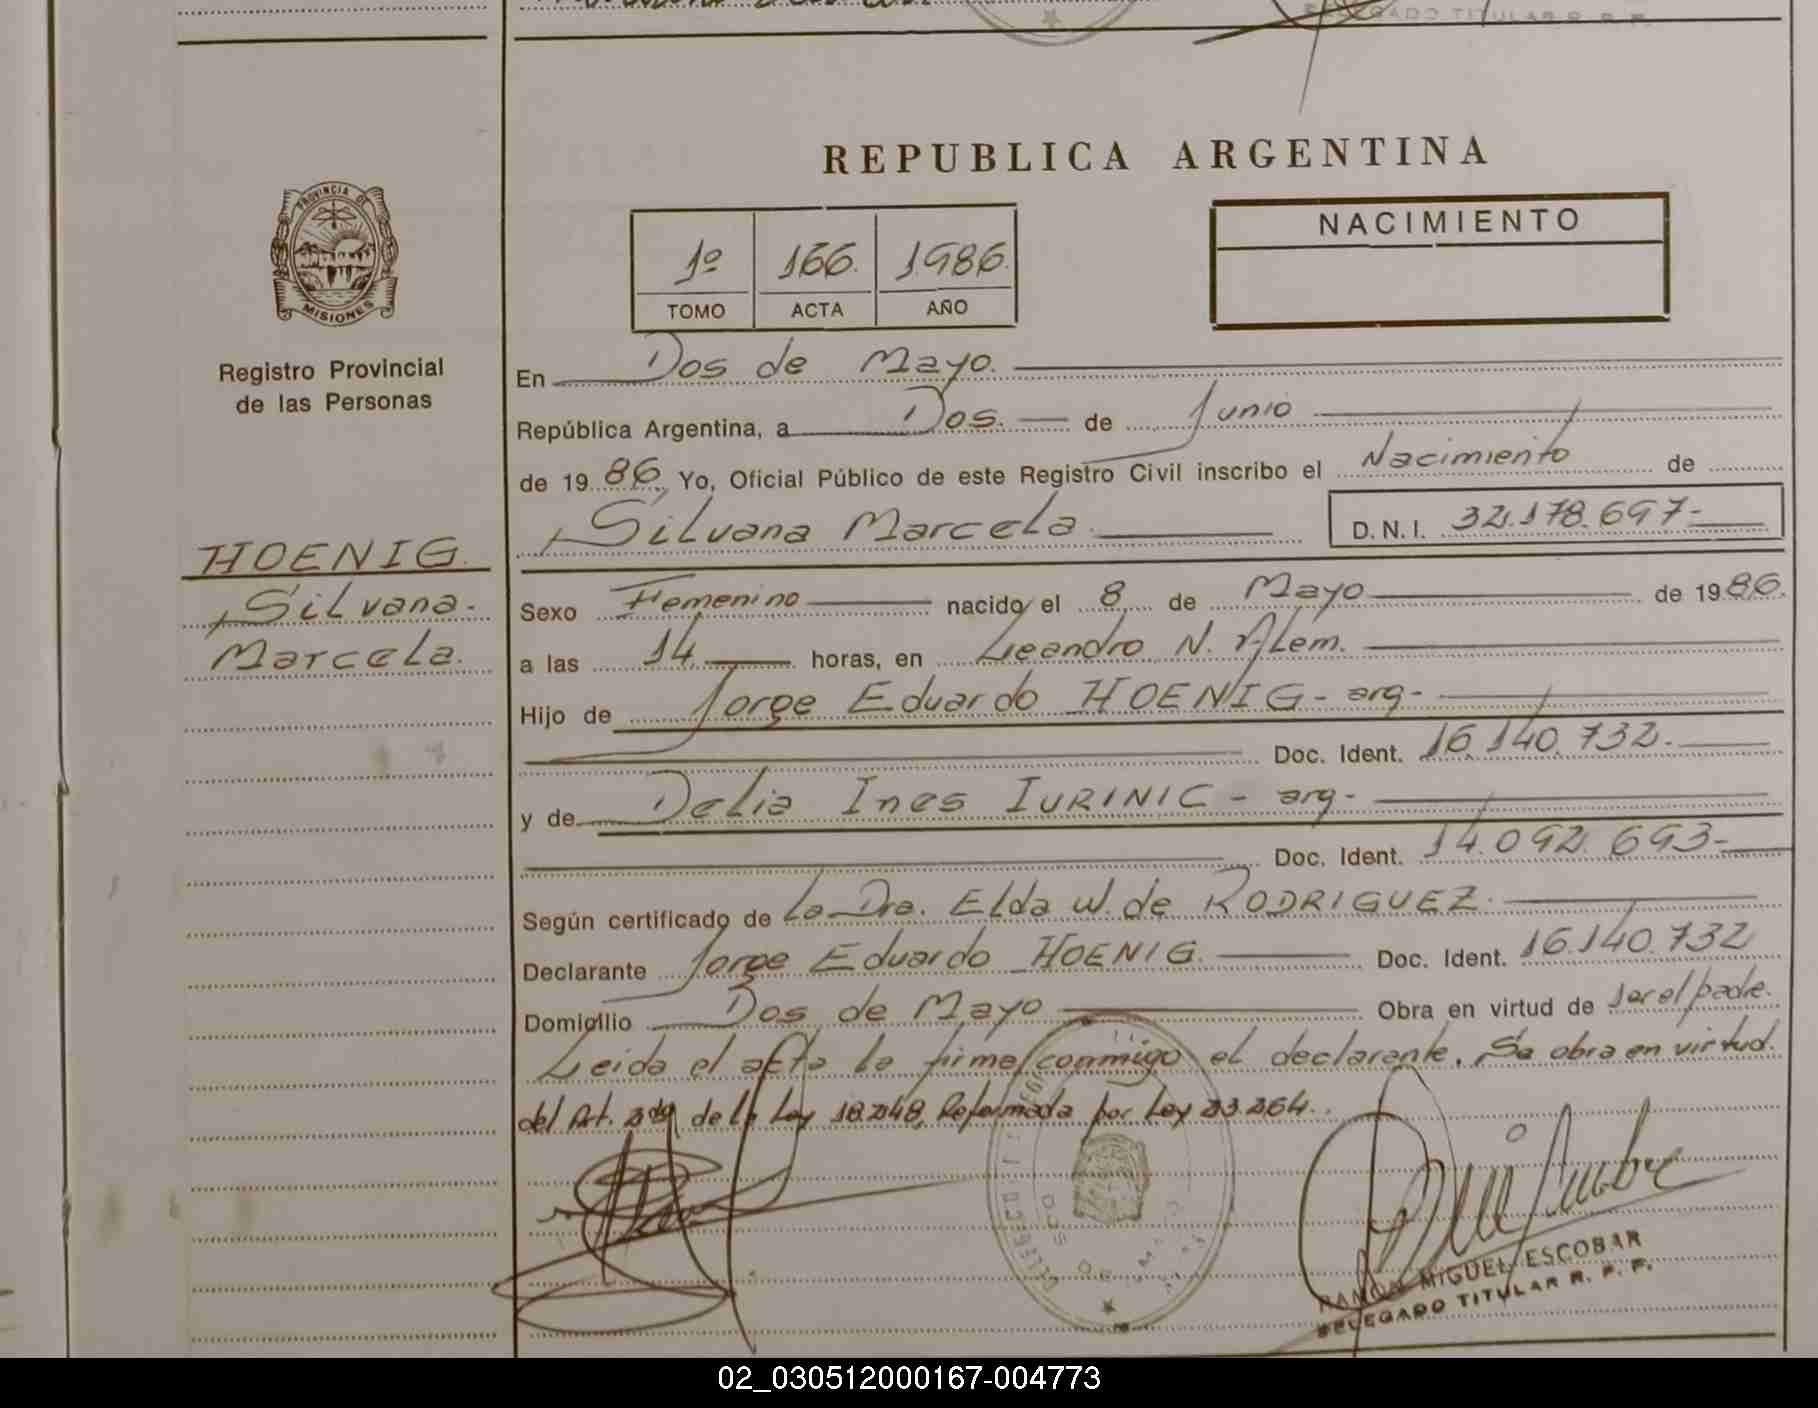 DELEGADO TITULAR R. P. F.
REPUBLICA ARGENTINA
PROVINCIA DE
MISIONES
Registro Provincial
de las Personas
1º 166. 1986.
TOMO ACTA AÑO
NACIMIENTO
En Dos de Mayo.
República Argentina, a Dos. de Junio
de 19 86. Yo, Oficial Público de este Registro Civil inscribo el Nacimiento de
Silvana Marcela. D.N.I. 32.178.697-
HOENIG.
Silvana.
Marcela.
Sexo Femenino nacido el 8 de Mayo de 1986.
a las 14 horas, en Leandro N. Alem.
Hijo de Jorge Eduardo HOENIG - arg-
Doc. Ident. 16.140.732.
y de Delia Ines IURINIC - arg-
Doc. Ident. 14.092.693-
Según certificado de la Dra. Elda W. de RODRIGUEZ.
Declarante Jorge Eduardo HOENIG. Doc. Ident. 16.140.732
Domicilio Dos de Mayo Obra en virtud de ser el padre.
Leida el acta la firma conmigo el declarante. Se obra en virtud.
del Art. 2do de la Ley 18.248, Reformada por Ley 23.264.
DOS DE MAYO
RAMON MIGUEL ESCOBAR
DELEGADO TITULAR R. P. F.
02_030512000167-004773